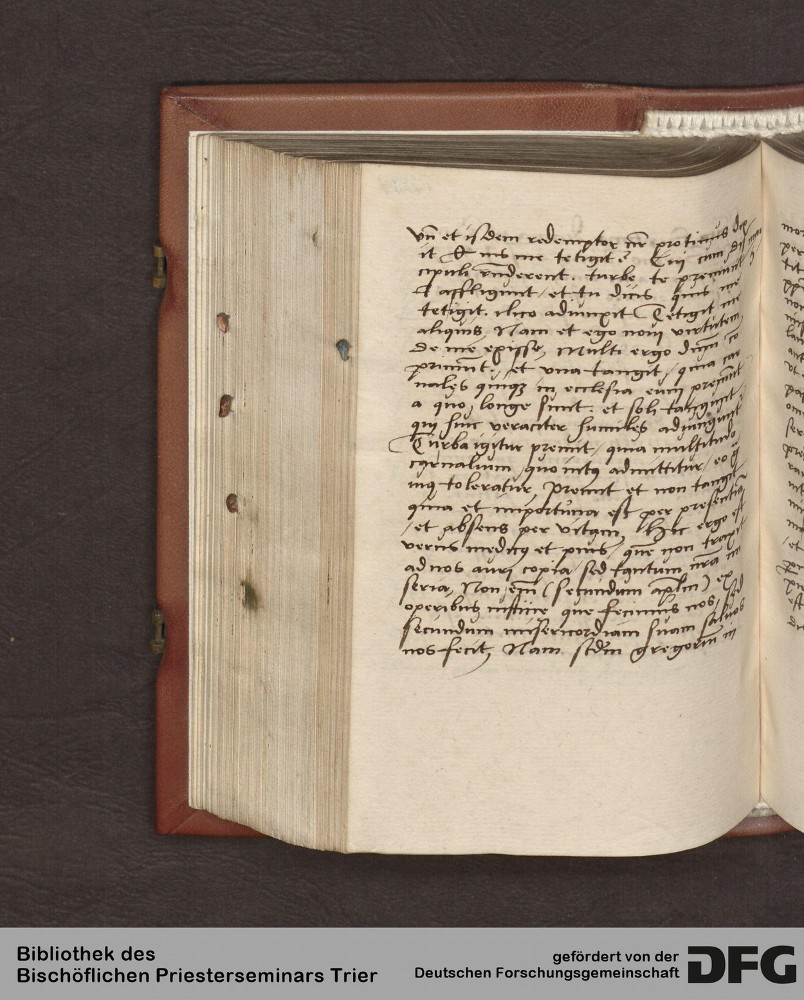 Vn et isdem redemptor nr protinus
it & ms me tetigit? Cui cum
cipuli rnderent. turbe te premunt
& affligunt / et tu dicis quis me
tetigit. ilico adiunxit Tetigit me
aliquis, Nam et ego noui virtutem
de me exisse, Multi ergo dnm co
primunt. et vna tangit, quia car
nales quiqz in ecclesia eum premunt
a quo longe sunt. et soli tangunt
qui huic veraciter humiles adiungunt
Turba igitur premit, quia multitudo
carnalium, quo intq admittitur, eo
inq toleratur, Premit et non tangit
quia et importuna est per presentia
/ et absens per vitam, Hic ergo est
verus medicq et pius, que non traxit
ad nos auri copia, sed tantum nra mi
seria, Non em (secundum aplm) ex
operibus iustitie que fecimus nos, sed
secundum misericordiam suam saluos
nos fecit, Nam scdm gregorium in
Bibliothek des
Bischöflichen Priesterseminars Trier
gefördert von der
Deutschen Forschungsgemeinschaft
DFG